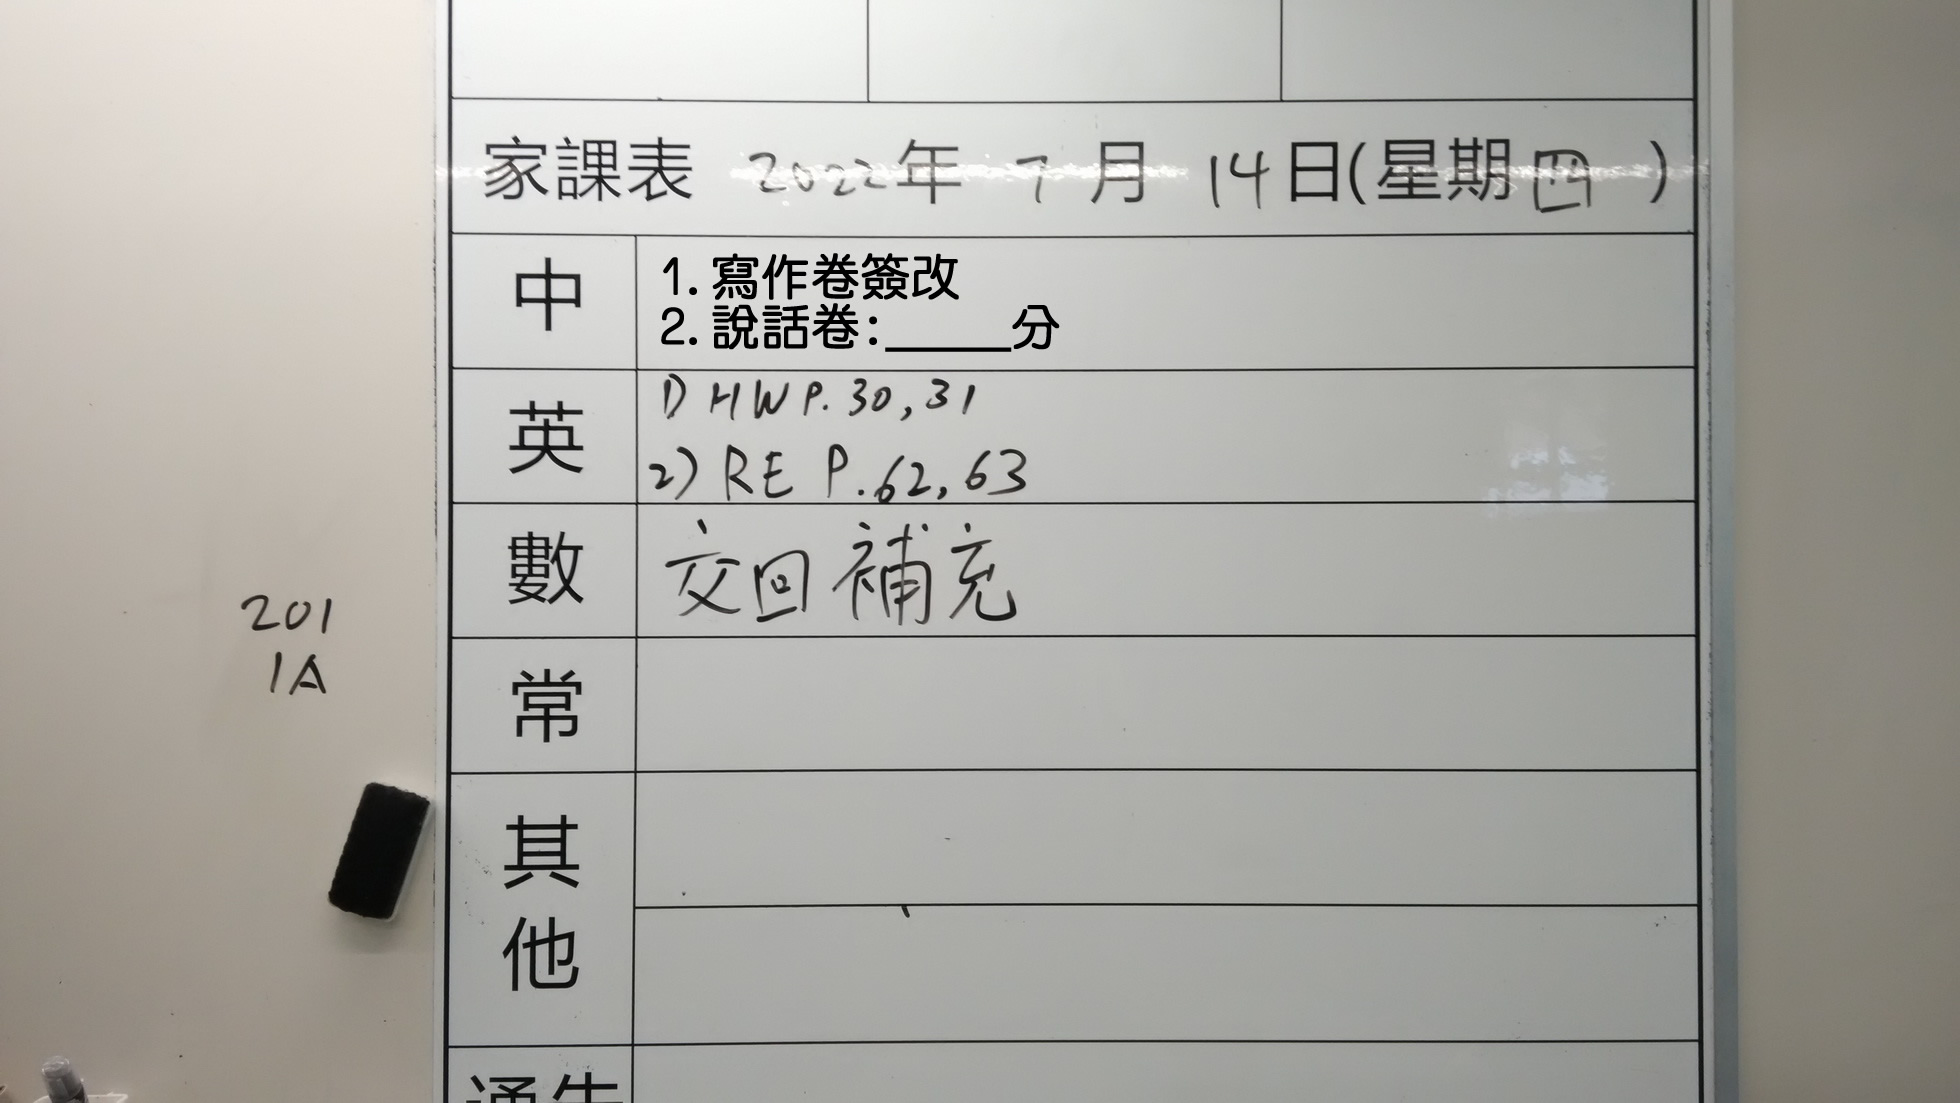 家課表 2022年 7月 14日(星期四)
中
1. 寫作卷簽改
2. 說話卷:_____分
英
1) HW P. 30, 31
2) RE P. 62, 63
數
交回補充
201
1A
常
其
他
通告